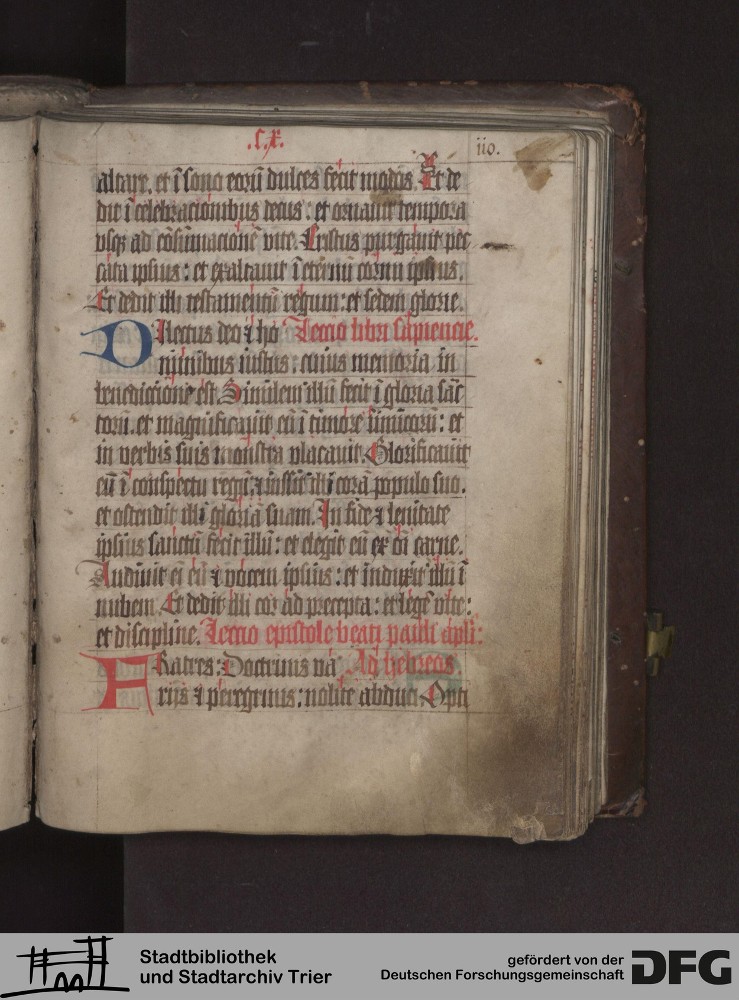 .C.X. 110.
altare. et ī sono eorū dulces fecit modos. Et de
dit ī celebracionibus decus: et ornauit tempora
vsqȝ ad cōsūmacionē vite. Cristus purgauit pec
cata ipsius: et exaltauit ī eternū cornu ipsius.
Et dedit illi testamentū regum: et sedem glorie.
Dilectus deo ⁊ ho Leccio libri sapiencie.
minibus iustus: cuius memoria in
benediccione est. Similem illū fecit ī gloria sāc
torū. et magnificauit eū ī timore inimicorū: et
in verbis suis monstra placauit. Glorificauit
eū ī conspectu regū. ⁊ iussit illi corā populo suo.
et ostendit illi gloriā suam. In fide ⁊ lenitate
ipsius sanctū fecit illū: et elegit eū ex oī carne.
Audiuit eī eū ⁊ vocem ipsius: et induxit illū ī
nubem. Et dedit illi cor ad precepta: et legē vite:
et discipline. Leccio epistole beati pauli apli:
Fratres: Doctrinis va Ad hebreos
rijs ⁊ peregrinis: nolite abduci. Opti
Stadtbibliothek
und Stadtarchiv Trier
gefördert von der
Deutschen Forschungsgemeinschaft DFG